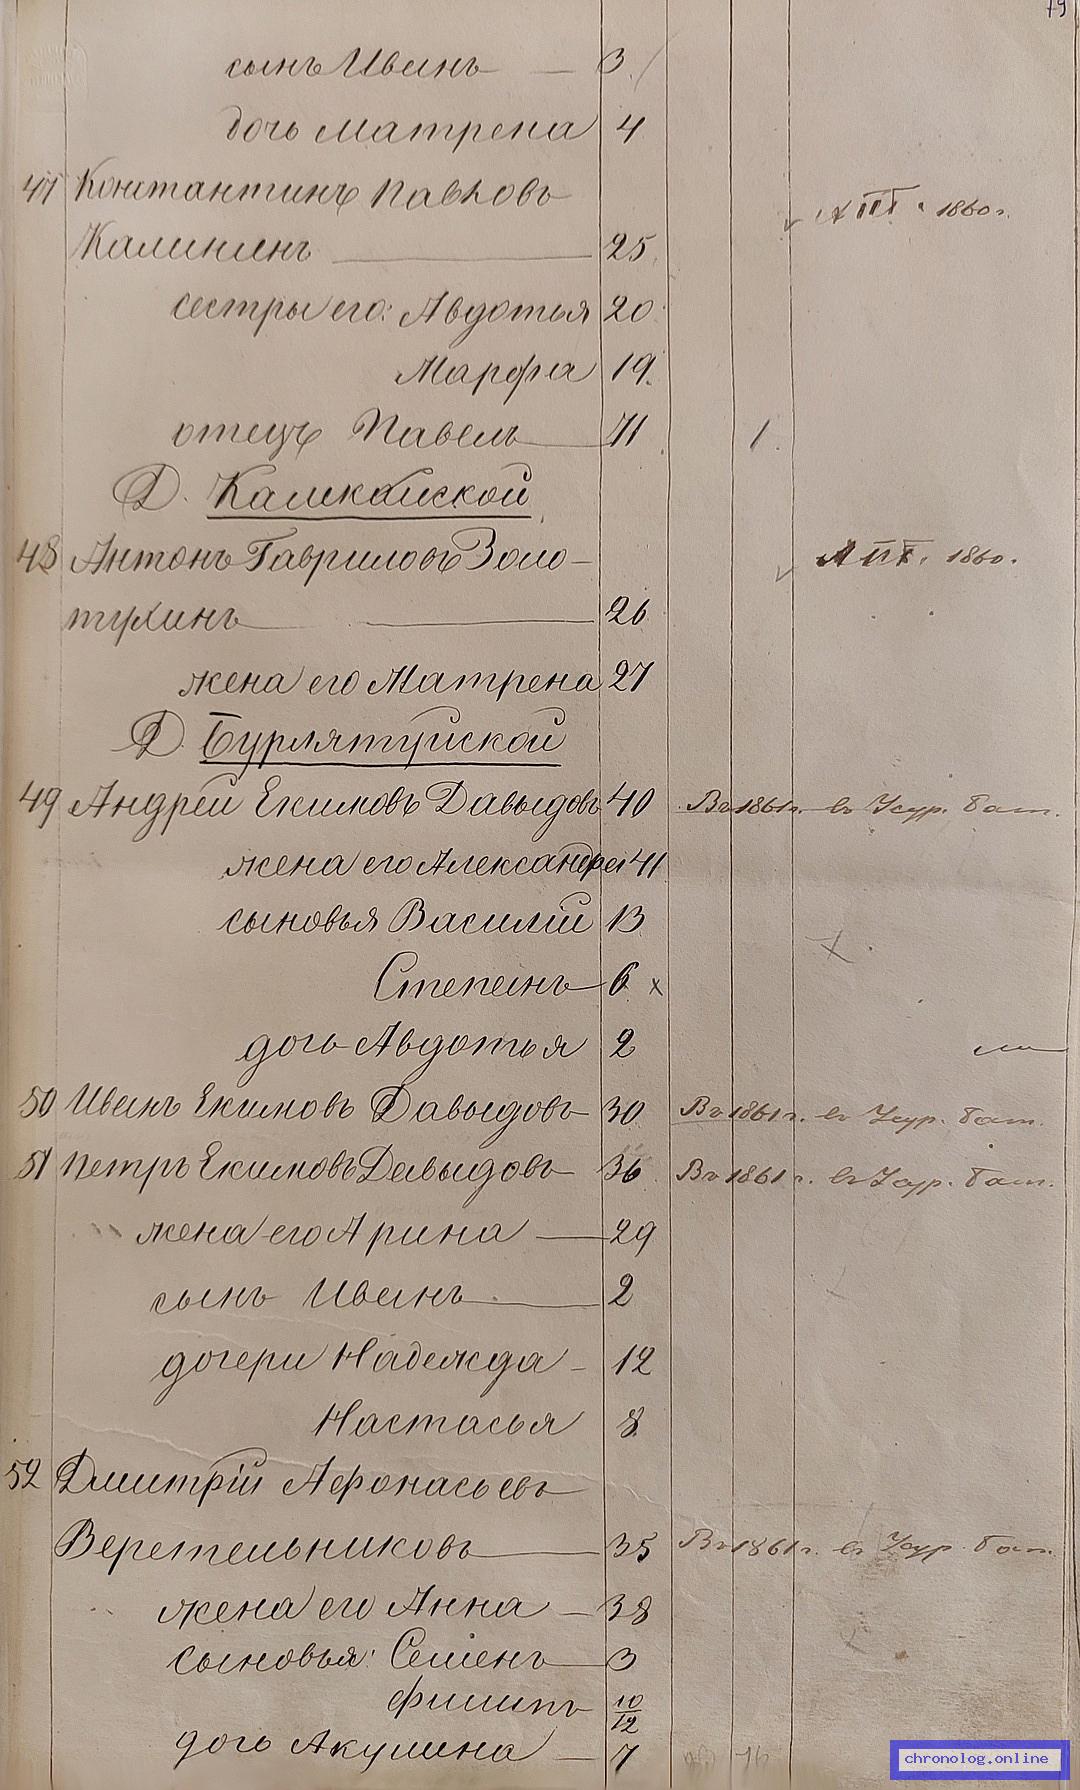 79
сынъ Иванъ — 3
дочь Матрена 4
47 Константинъ Павловъ
Калининъ — 25 1860 г.
сестры его: Авдотья 20
Марфа 19
отецъ Павелъ — 71 1
Д. Калкайской
48 Антонъ Гавриловъ Золо- 1860.
тухинъ — 26
жена его Матрена 27
Д. Бурлятуйской
49 Андрей Екимовъ Давыдовъ 40 Въ 1861 г. въ Усур. бат.
жена его Александра 41
сыновья Василій 13
Степанъ 6 x
дочь Авдотья 2
50 Иванъ Екимовъ Давыдовъ 30 Въ 1861 г. въ Усур. бат.
51 Петръ Екимовъ Давыдовъ 36 Въ 1861 г. въ Усур. бат.
жена его Арина — 29
сынъ Иванъ — 2
дочери Надежда — 12
Настасья 8
52 Дмитрій Афонасьевъ
Веретельниковъ — 35 Въ 1861 г. въ Усур. бат.
жена его Анна — 38
сыновья: Семенъ — 3
Филипъ 10/12
дочь Акулина — 7
chronolog.online